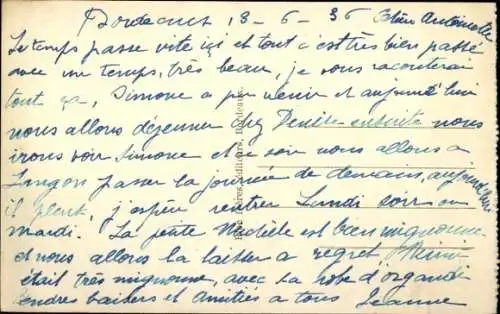 Bordeaux 18-6-36 Chère Antoinette
Le temps passe vite ici et tout c'est très bien passé
avec un temps, très beau, je vous raconterai
tout ça, Simone a pu venir et aujourd'hui
nous allons déjeuner chez Denise ensuite nous
irons voir Simone et ce soir nous allons a
Langon passer la journée de demain, aujourd'hui
il pleut, j'espère rentrer Lundi soir ou
mardi. La petite Michèle est bien mignonne
et nous allons la laisser a regret
était très mignonne, avec sa robe d'organdi
tendres baisers et Amitiés a tous Jeanne